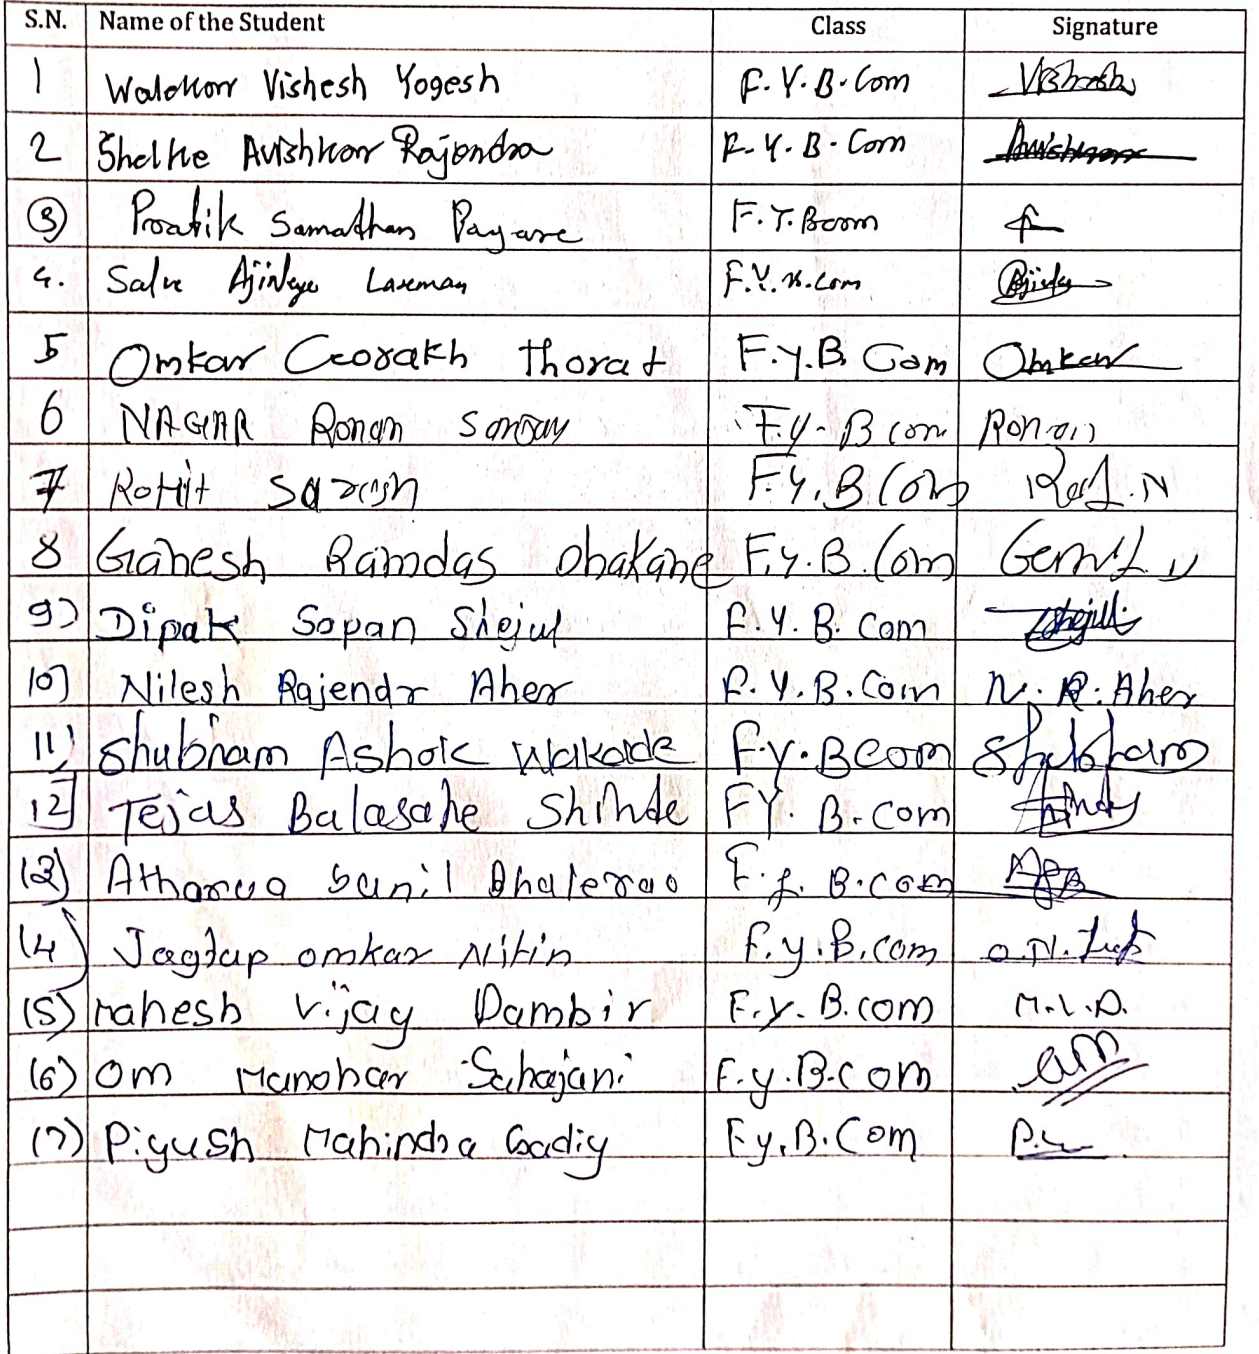 S.N. Name of the Student Class Signature
1 Walekar Vishesh Yogesh F.Y.B.Com Vishesh
2 Shelke Avishkar Rajendra F.Y.B.Com Avishkar
3 Pratik Samadhan Pagare F.Y.Bcom
4. Salve Ajinkya Laxman F.Y.B.Com Ajinky
5 Omkar Gorakh Thorat F.y.B Com Omkar
6 NAGAR Ronan Sanjay F.y-B com Ronan
7 Rohit F.y.B Com
8 Ganesh Ramdas Dhakane F.y.B.Com
9) Dipak Sopan Shejul F.Y.B. Com Shejul
10) Nilesh Rajendr Aher F.Y.B.Com N.R.Aher
11) Shubham Ashok Wakade F.y.Bcom Shubham
12] Tejas Balasahe Shinde FY. B.com Shinde
13) Atharva Sunil Bhalerao F.y. B.com
14) Jagtap omkar Nitin F.y.B.com
15) Mahesh Vijay Dambir F.y.B.com M.V.D.
16) Om Manohar Sahajani F.y.B.com om
17) Piyush Mahindra Gadiy F.y.B.Com